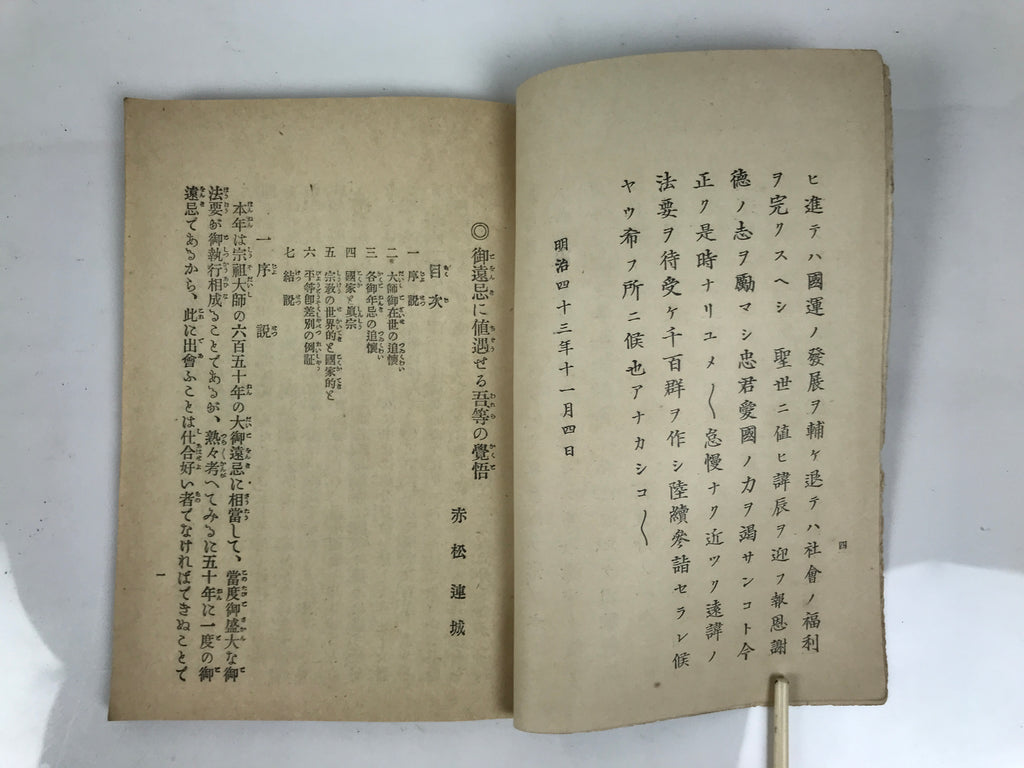 ヒ進テハ國運ノ發展ヲ輔ケ退テハ社會ノ福利
ヲ完クスヘシ　聖世ニ値ヒ諱辰ヲ迎フ報恩謝
德ノ志ヲ勵マシ忠君愛國ノ力ヲ竭サンコト今
正ク是時ナリユメ〱怠慢ナク近ツク遠諱ノ
法要ヲ待受ケ千百群ヲ作シ陸續參詣セラレ候
ヤウ希フ所ニ候也アナカシコ〱
明治四十三年十一月四日
四
◎御遠忌に値遇せる吾等の覺悟
赤松連城
目次
一　序説
二　大師御在世の追懷
三　各御年忌の追懷
四　國家と眞宗
五　宗教の世界的と國家的と
六　平等卽差別の例証
七　結説
一　序説
本年は宗祖大師の六百五十年の大御遠忌に相當して、當度御盛大な御
法要が御執行相成ることであるが、熟々考へてみるに五十年に一度の御
遠忌であるから、此に出會ふことは仕合好い者でなければできぬことで
一